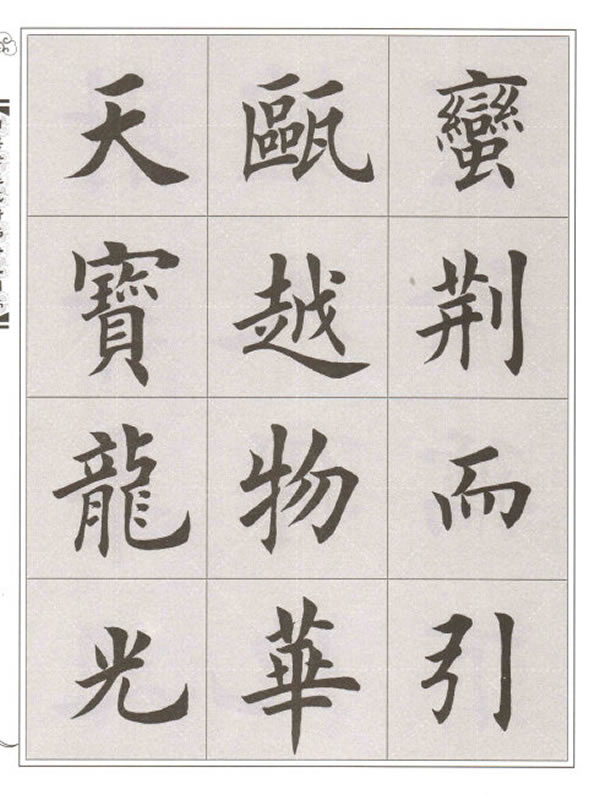 蠻荆而引
甌越物華
天寶龍光